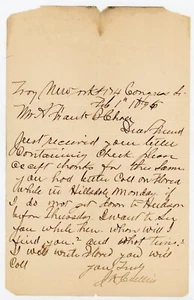 Troy New York 174 Congress St
Feb 1st 1886
Mr. Frank B Chace
Dear friend
Just received your letter
Containing Check please
accept thanks for the same
you had better Call on
while in Hillsdale Monday if
I do not get down to Hudson
before Thursday I want to see
you while then when will I
find you? and what time?
I will write and you will
Call
Yours Truly